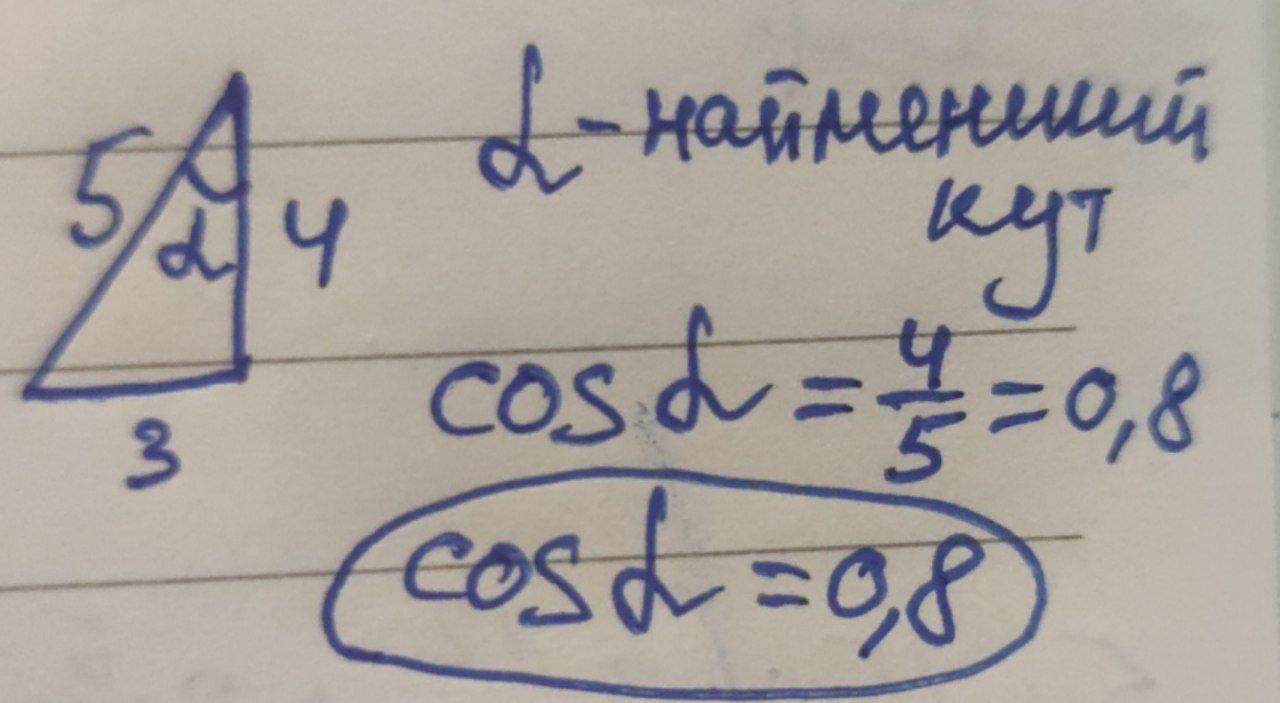 5
α
4
3
α - найменший
кут
cos α = 4/5 = 0,8
cos α = 0,8